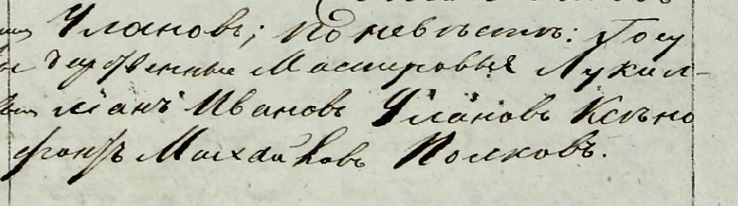 Улановъ; по невѣстѣ: Госу
дарственные Мастеровые Лукил-
ліанъ Ивановъ Улановъ Ксѣно
фонтъ Михайловъ Волковъ.